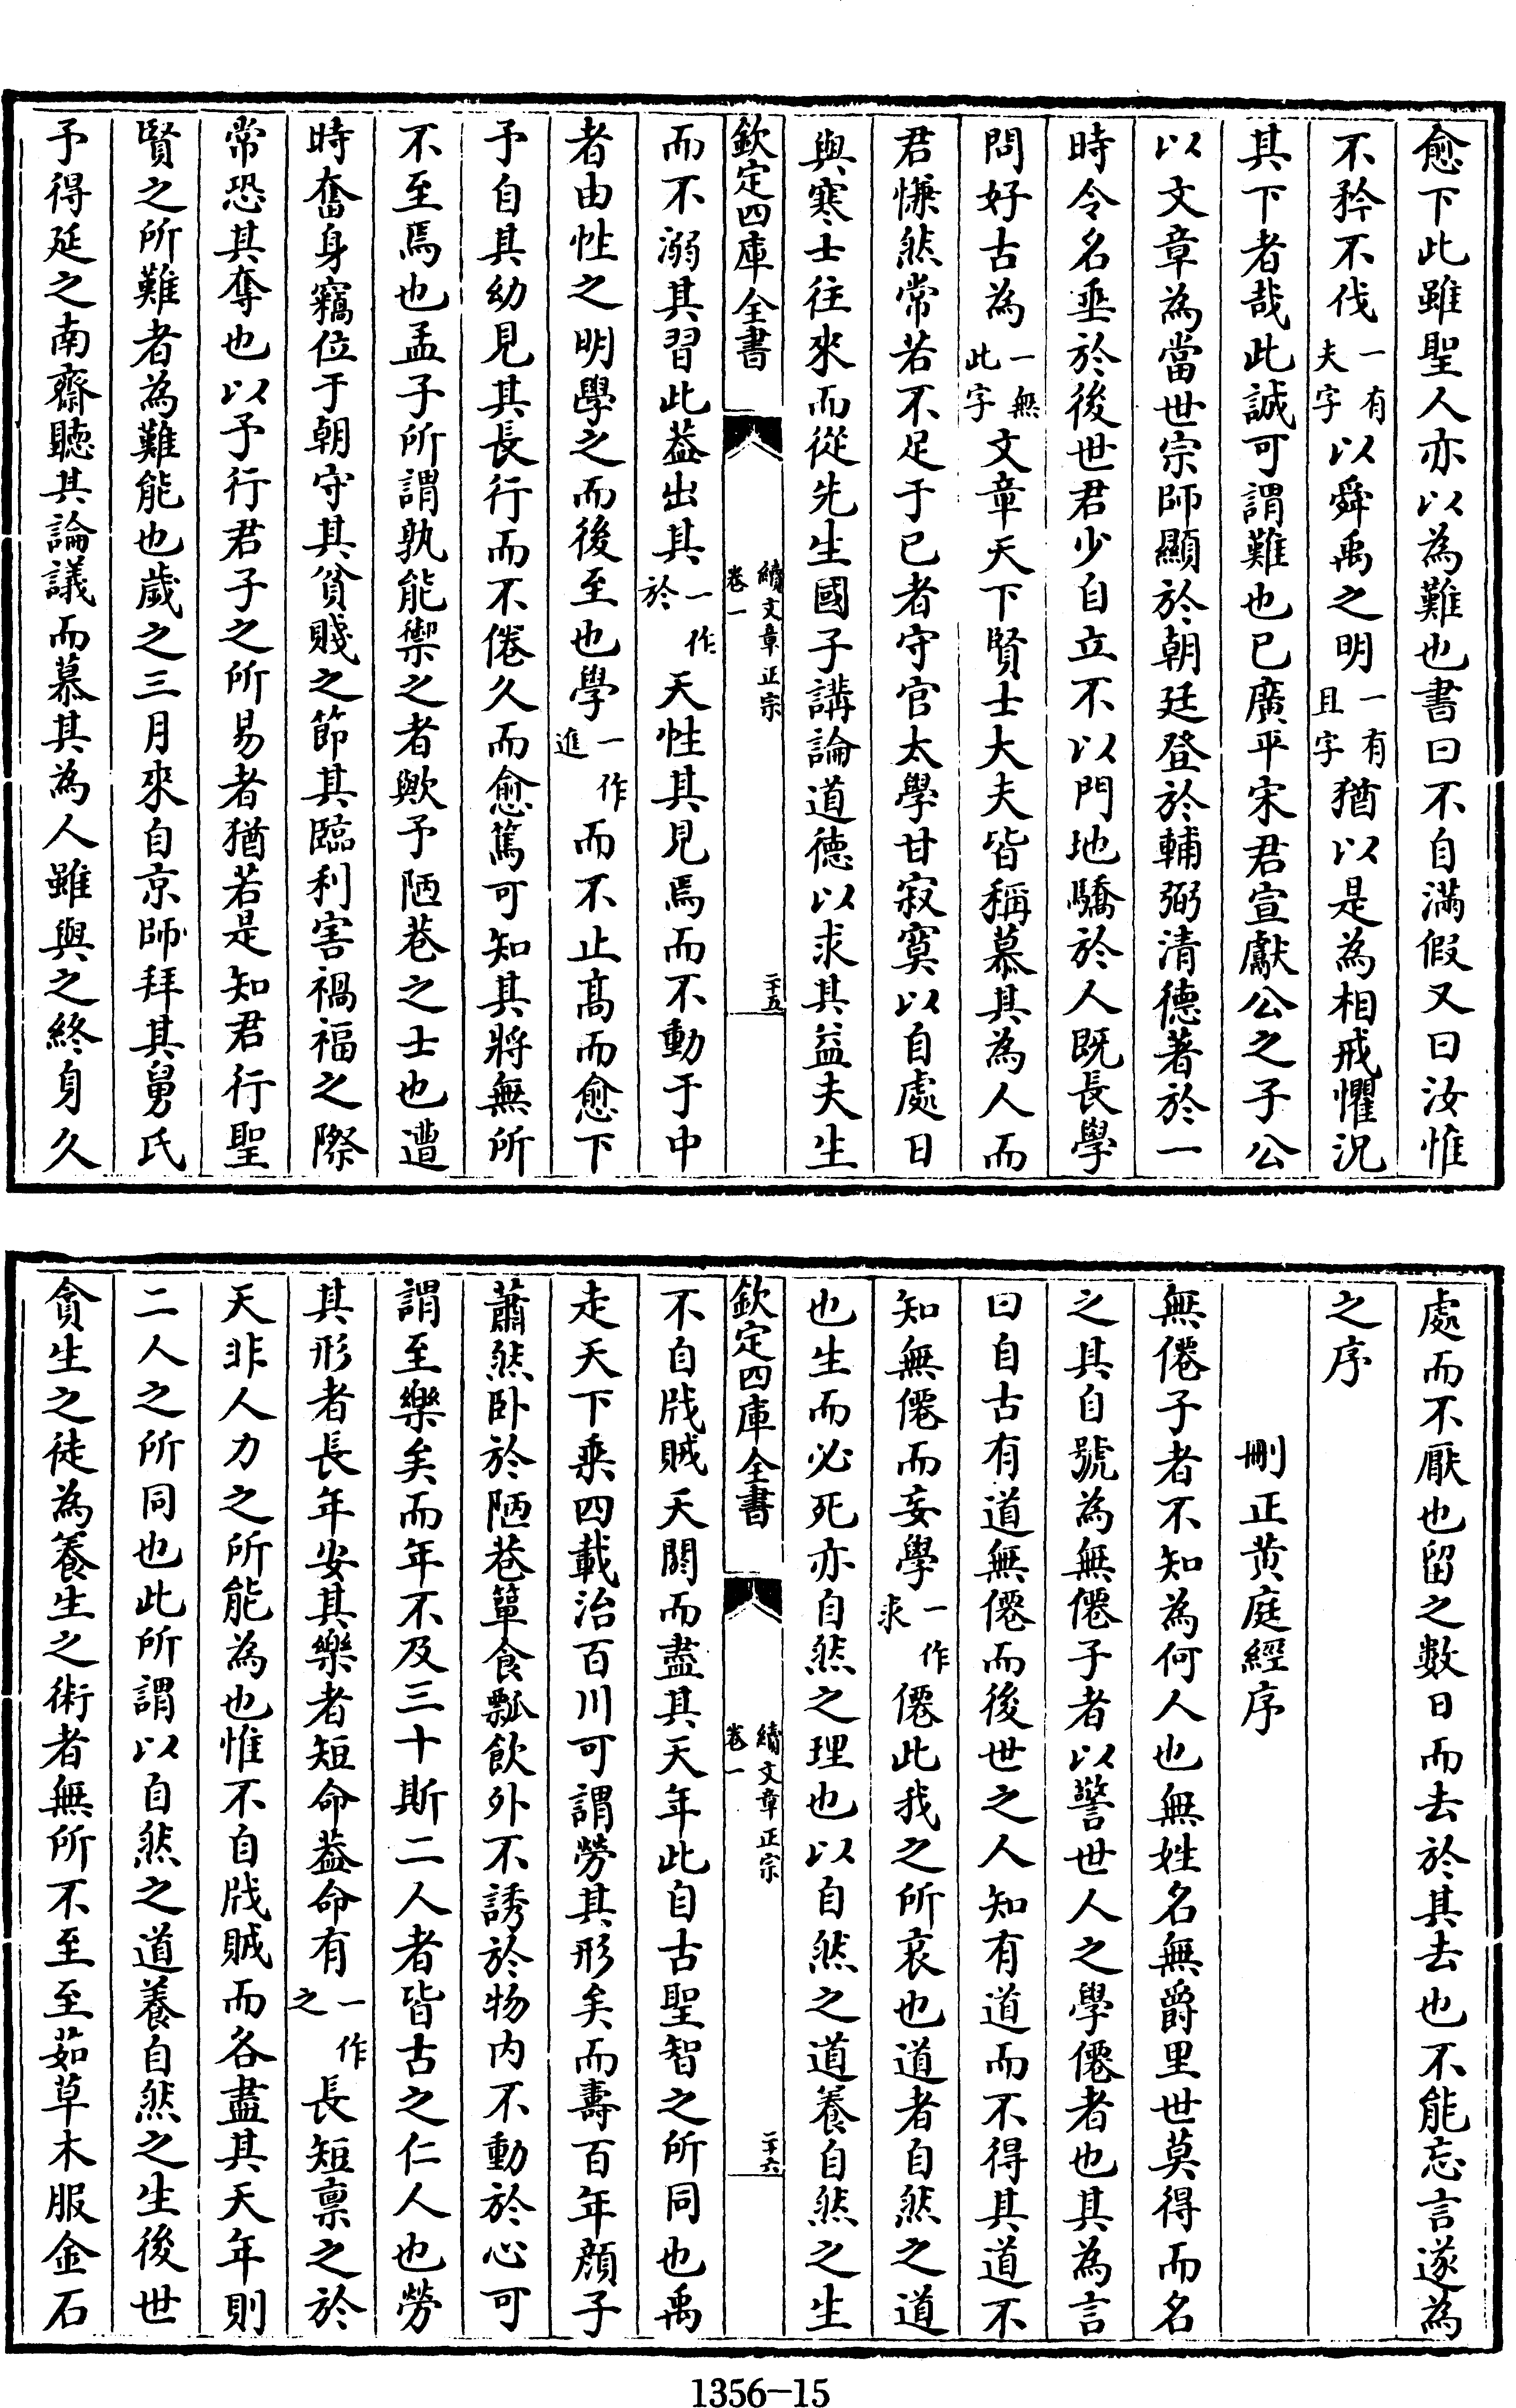 愈下此雖聖人亦以為難也書曰不自滿假又曰汝惟
不矜不伐一有夫字以舜禹之明一有且字猶以是為相戒懼況
其下者哉此誠可謂難也已廣平宋君宣獻公之子公
以文章為當世宗師顯於朝廷登於輔弼清德著於一
時令名垂於後世君少自立不以門地驕於人既長學
問好古為一無此字文章天下賢士大夫皆稱慕其為人而
君慊然常若不足于已者守官太學甘寂寞以自處日
與寒士往來而從先生國子講論道德以求其益夫生
欽定四庫全書
續文章正宗
卷一
二十五
而不溺其習此葢出其一作於天性其見焉而不動于中
者由性之明學之而後至也學一作進而不止髙而愈下
予自其幼見其長行而不倦久而愈篤可知其將無所
不至焉也孟子所謂孰能禦之者歟予陋巷之士也遭
時奮身竊位于朝守其貧賤之節其臨利害禍福之際
常恐其奪也以予行君子之所易者猶若是知君行聖
賢之所難者為難能也歲之三月來自京師拜其舅氏
予得延之南齋聽其論議而慕其為人雖與之終身久
處而不厭也留之數日而去於其去也不能忘言遂為
之序
刪正黄庭經序
無僊子者不知為何人也無姓名無爵里世莫得而名
之其自號為無僊子者以警世人之學僊者也其為言
曰自古有道無僊而後世之人知有道而不得其道不
知無僊而妄學一作求僊此我之所哀也道者自然之道
也生而必死亦自然之理也以自然之道養自然之生
欽定四庫全書
續文章正宗
卷一
二十六
不自戕賊夭閼而盡其天年此自古聖智之所同也禹
走天下乘四載治百川可謂勞其形矣而壽百年顔子
蕭然卧於陋巷簞食瓢飲外不誘於物内不動於心可
謂至樂矣而年不及三十斯二人者皆古之仁人也勞
其形者長年安其樂者短命葢命有一作之長短禀之於
天非人力之所能為也惟不自戕賊而各盡其天年則
二人之所同也此所謂以自然之道養自然之生後世
貪生之徒為養生之術者無所不至至茹草木服金石
1356-15